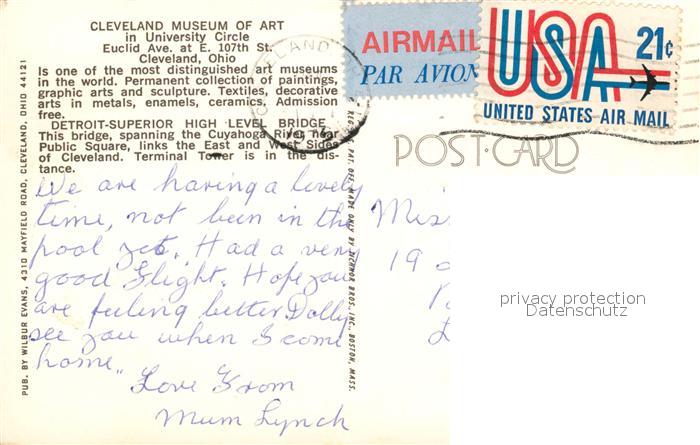 CLEVELAND MUSEUM OF ART
in University Circle
Euclid Ave. at E. 107th St.
Cleveland, Ohio
Is one of the most distinguished art museums
in the world. Permanent collection of paintings,
graphic arts and sculpture. Textiles, decorative
arts in metals, enamels, ceramics. Admission
free.
DETROIT-SUPERIOR HIGH LEVEL BRIDGE
This bridge, spanning the Cuyahoga River near
Public Square, links the East and West Sides
of Cleveland. Terminal Tower is in the dis-
tance.
We are having a lovely
time, not been in the
pool yet. Had a very
good flight. Hope you
are feeling better Dolly
see you when I come
home.
Love From
Mum Lynch
PUB. BY WILBUR EVANS, 4310 MAYFIELD ROAD, CLEVELAND, OHIO 44121
REG. U.S. PAT. OFF. MADE ONLY BY DEXTER BROS. INC., BOSTON, MASS.
AIRMAIL
PAR AVION
USA 21c
UNITED STATES AIR MAIL
POST CARD
Miss
19
privacy protection
Datenschutz